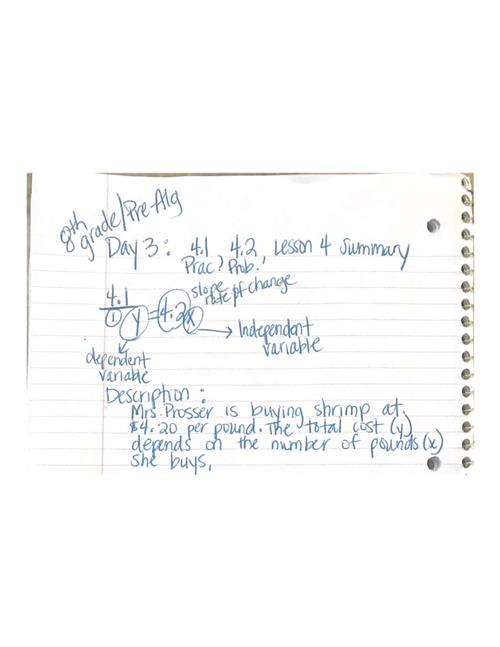 8th grade/Pre-Alg
Day 3: 4.1 Prac? 4.2 Prob., Lesson 4 Summary
4.1
slope
rate of change
① y = 4.2x → Independent variable
dependent variable
Description:
Mrs. Prosser is buying shrimp at
$4.20 per pound. The total cost (y)
depends on the number of pounds (x)
she buys.